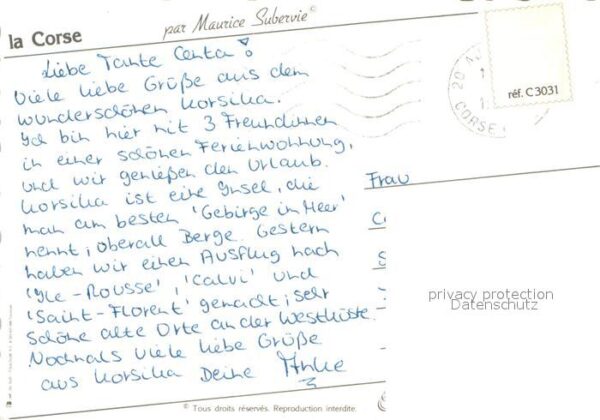 la Corse
par Maurice Subervie ©
Liebe Tante Centa!
Viele liebe Grüße aus dem
wunderschönen Korsika.
Ich bin hier mit 3 Freundinnen
in einer schönen Ferienwohnung,
und wir genießen den Urlaub.
Korsika ist eine Insel, die
man am besten 'Gebirge im Meer'
nennt, überall Berge. Gestern
haben wir einen Ausflug nach
'Ile-Rousse', 'Calvi' und
'Saint-Florent' gemacht, sehr
schöne alte Orte an der Westküste.
Nochmals viele liebe Grüße
aus Korsika Deine Anke
réf. C3031
CORSE
Frau
privacy protection
Datenschutz
© Tous droits réservés. Reproduction interdite.